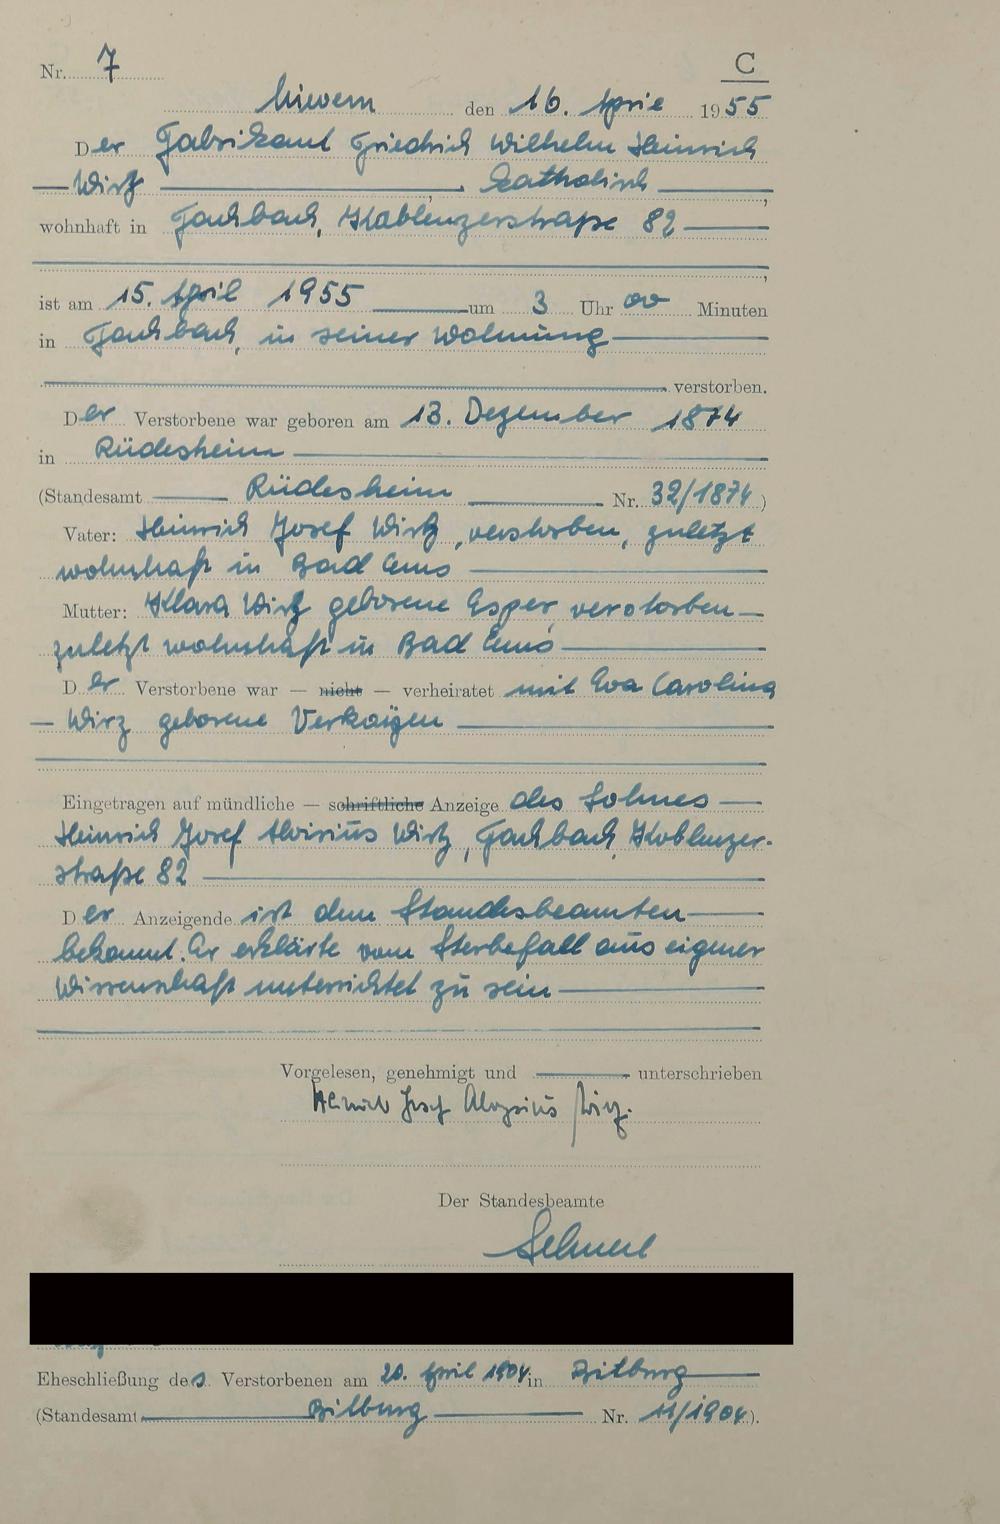 Nr. 7
C
Miwem den 16. April 1955
Der Fabrikant Friedrich Wilhelm Heinrich
Wirtz, katholisch,
wohnhaft in Fachbach, Koblenzerstraße 82
ist am 15. April 1955 um 3 Uhr 00 Minuten
in Fachbach, in seiner Wohnung
verstorben.
Der Verstorbene war geboren am 13. Dezember 1874
in Rüdesheim
(Standesamt Rüdesheim Nr. 32/1874)
Vater: Heinrich Josef Wirtz, verstorben, zuletzt
wohnhaft in Bad Ems
Mutter: Klara Wirtz geborene Esper, verstorben
zuletzt wohnhaft in Bad Ems
Der Verstorbene war — nicht — verheiratet mit Eva Carolina
Wirz geborene Verkoÿen
Eingetragen auf mündliche — schriftliche Anzeige des Sohnes
Heinrich Josef Aloisius Wirtz, Fachbach, Koblenzer-
straße 82
Der Anzeigende ist dem Standesbeamten
bekannt. Er erklärte vom Sterbefall aus eigener
Wissenschaft unterrichtet zu sein
Vorgelesen, genehmigt und unterschrieben
Heinrich Josef Aloysius Wirz.
Der Standesbeamte
Eheschließung des Verstorbenen am 20. April 1904 in Bitburg
(Standesamt Bitburg Nr. 11/1904).